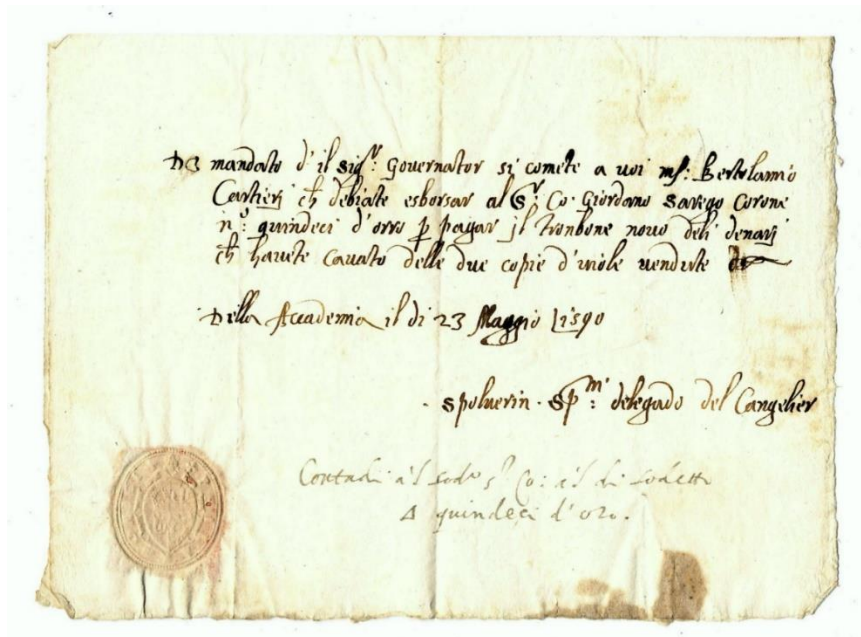 De mandato d'il sig.r Governator si comete a voi ms: Bertolamio
Cartieri ch debiate esborsar al S.r Co. Giordano Sarego Corone
n.o quindeci d'orro p pagar il trombone novo deli denarj
ch havete cavato delle due copie d'viole vendute
Della Accademia il di 23 Maggio 1590
Spolverin Sp.m: delegado del Cangelier
Contadi al sod.o s.r Co: al di sodetto
Δ quindeci d'oro.